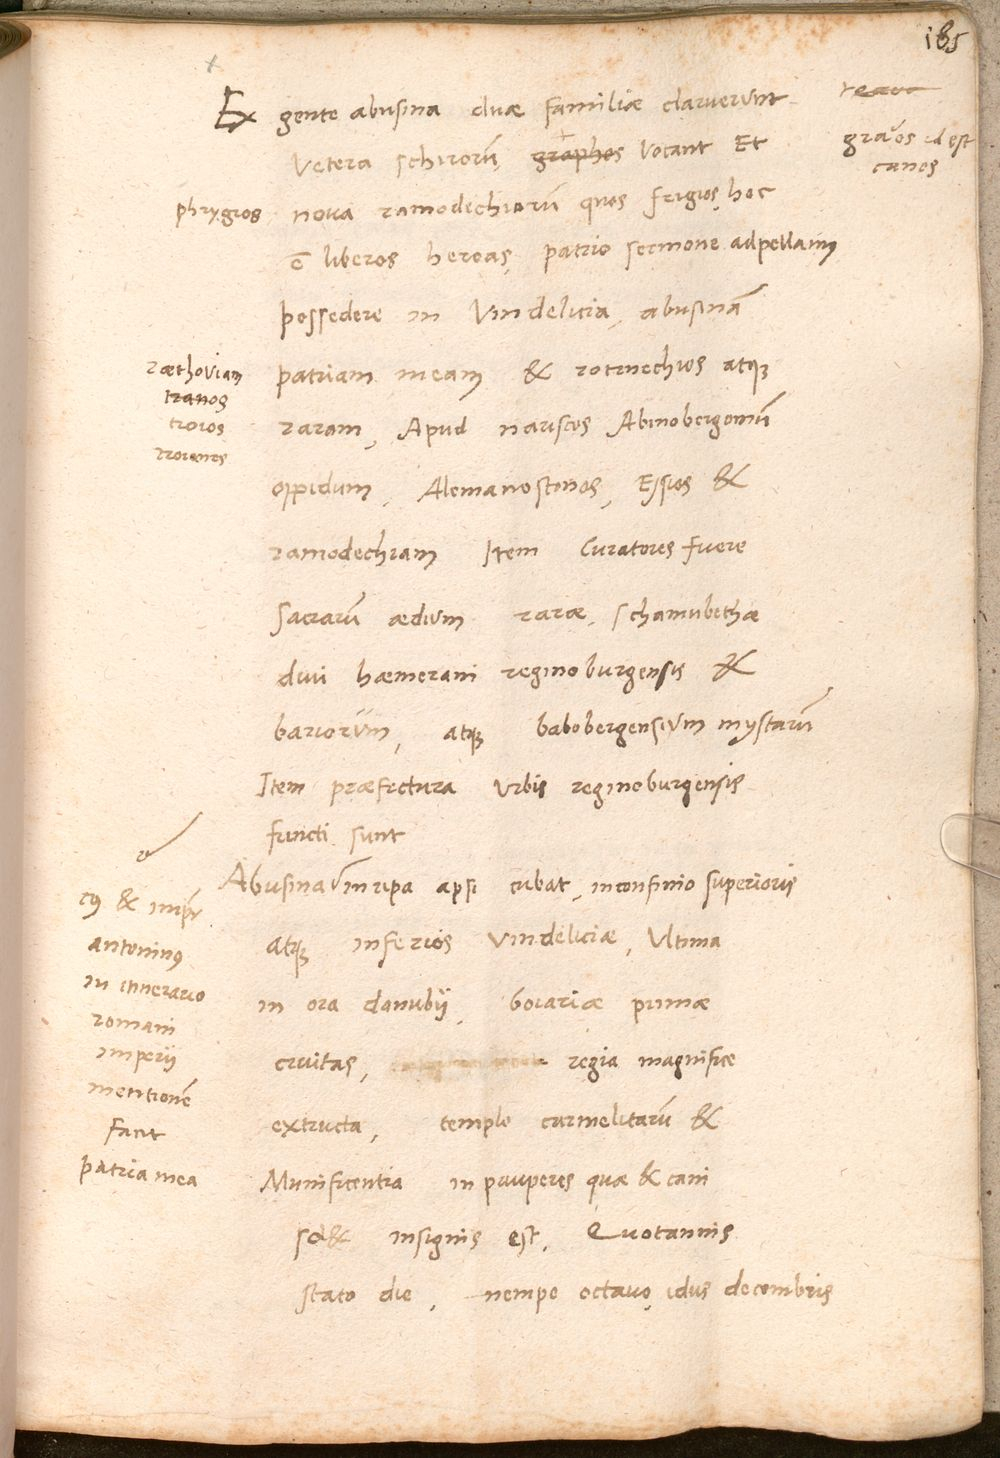 185
Ex gente abusina duæ familiæ claruerunt
graŭos id est
canos
Vetera schirorū graphos vocant Et
phrygios nova ramodechiorū quos frigios, hoc
ē liberos heroas, patrio sermone adpellam9
possedere in Vindelicia, abusinā
ræthoviam
tranos
troios
patriam meam & rotrnechios atq3
raram, Apud nariscos Abinobergomū
oppidum, Alemanostonos, Essios &
ramodechiam Item Curatores fuere
Sacrarū ædium raræ, schambethæ
divi hæmerani reginoburgensis &
bariorum, atq3 babobergensium mystarū
Item præfectura urbis reginoburgensis
functi sunt
Abusina in ripa apsi cubat, in confinio superioris
atq3 inferios Vindeliciæ, Ultima
in ora danubij, boiariæ primæ
civitas, regia magnifice
extructa, templo carmelitarū &
Munificentia in pauperes quæ & cani
sol& insignis est, Quotannis
stato die, nempe octavo, idus decembris
c9 & imp̄r
antonin9
in itinerario
romani
imperij
mentionē
facit
patria mea